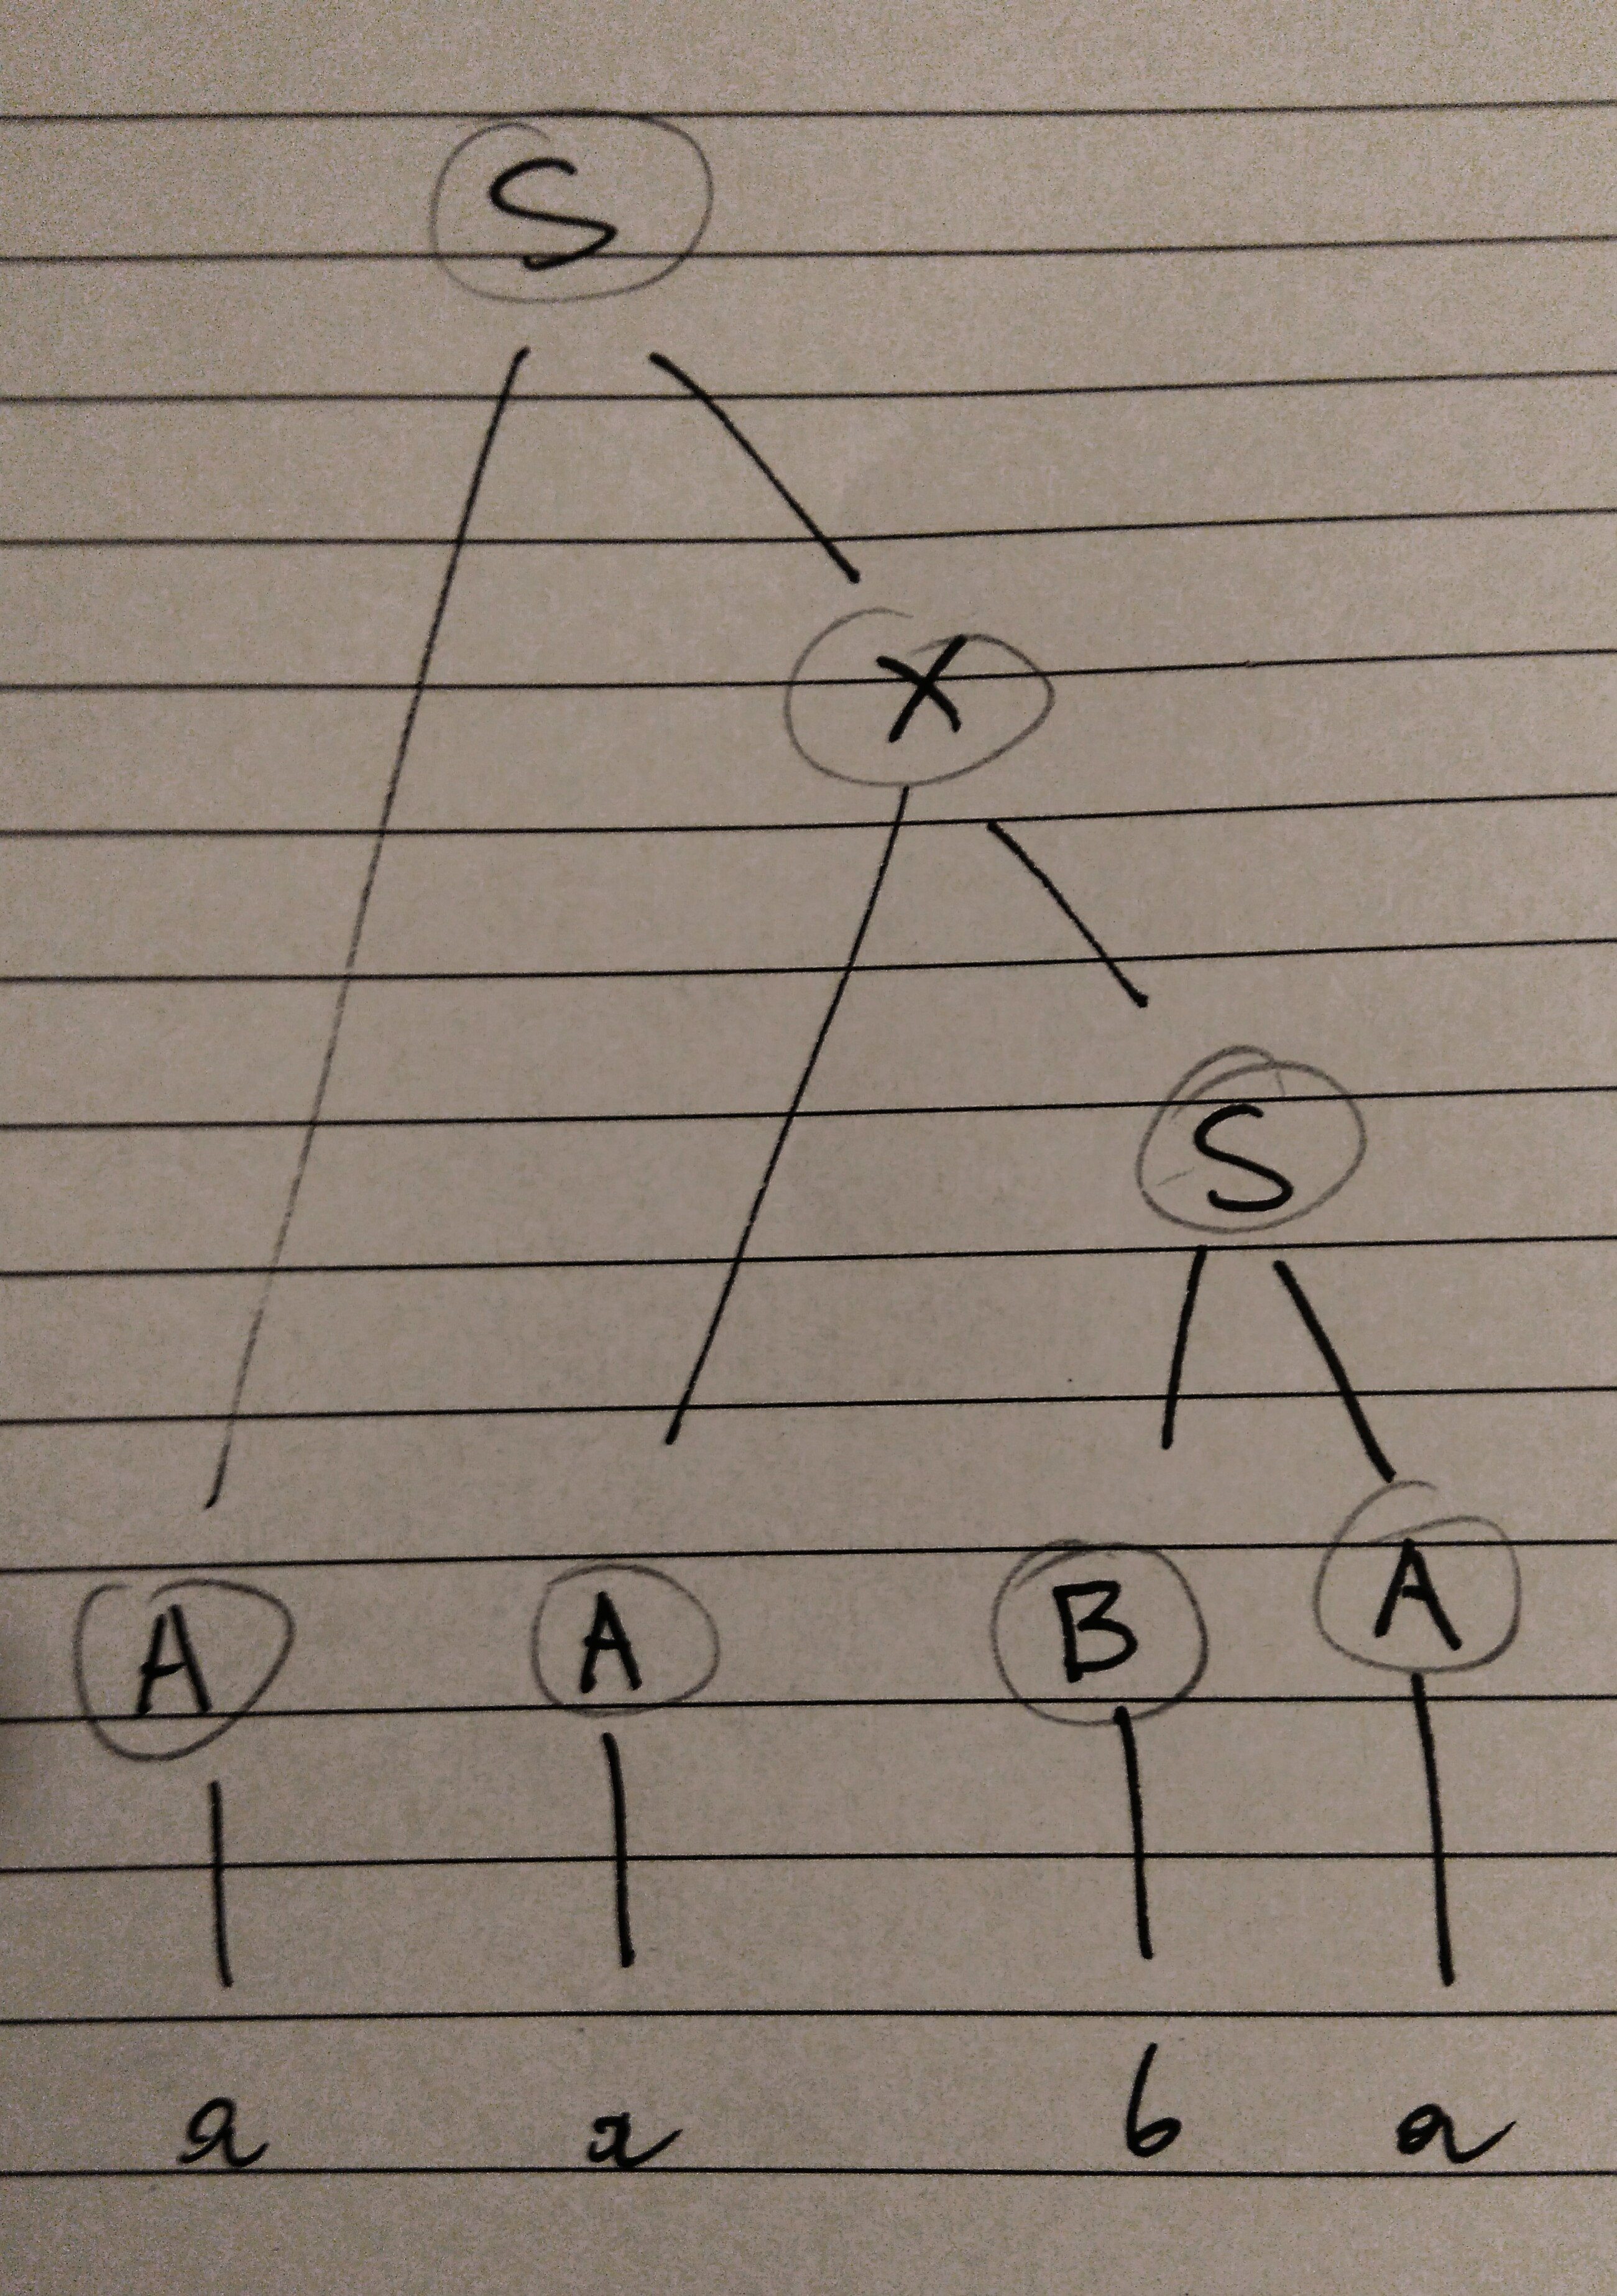 S
X
S
A A B A
a a b a